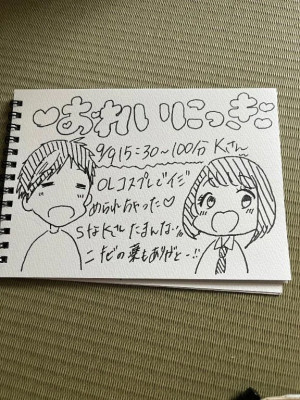 ♡おれいにっき♡
9/9 15:30~100分 Kさん
OLコスプレでイジ
められちゃった♡
SなKさんたまんない
ニキビの薬もありがと-!!